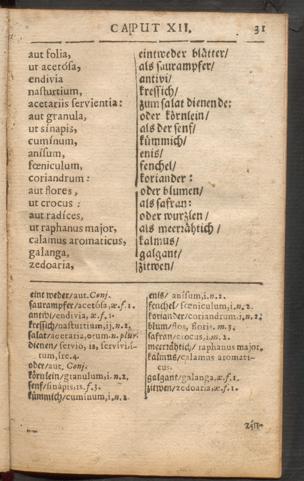 CAPUT XII. 31
aut folia, eintweder blätter/
ut acetósa, als saurampfer/
endivia antivi/
nasturtium, kressich/
acetariis servientia: zum salat dienende:
aut granula, oder körnlein/
ut sinapis, als der senf/
cumínum, kümmich/
anísum, enis/
fœniculum, fenchel/
coriandrum: koriander:
aut flores, oder blumen/
ut crocus: als safran:
aut radíces, oder wurzlen/
ut raphanus major, als meerrähtich/
calamus aromaticus, kalmus/
galanga, galgant/
zedoaria, zitwen/
eintweder/aut. Conj.
saurampfer/acetósa, æ. f. 1.
antivi/endivia, æ. f. 1.
kressich/nasturtium, ij, n. 2.
salat/acetaria, orum n. plur.
dienen/servio, is, servivi, i-
tum, ire. 4.
oder/aut. Conj.
körnlein/granulum, i. n. 2.
senf/sinapis, is. f. 3.
kümmich/cumínum, i, n. 2.
enis/ anísum, i. n. 2.
fenchel/ fœniculum, i, n. 2.
koriander/coriandrum, i. n. 2.
blum/flos, floris. m. 3.
safran/crocus, i, m. 2.
meerrähtich/ raphanus major.
kalmus/calamus aromati-
cus.
galgant/galanga, æ. f. 1.
zitwen/zedoaria, æ. f. 1.